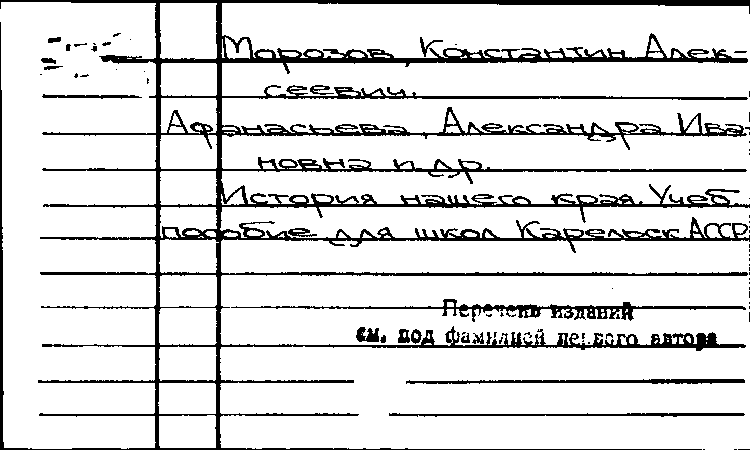 Морозов, Константин Алек-
сеевич.
Афанасьева, Александра Ива-
новна и др.
История нашего края. Учеб.
пособие для школ Карельск АССР
Перечень изданий
см. под фамилией первого автора